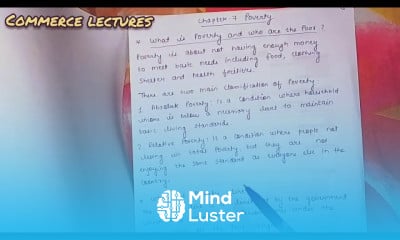 COMMERCE LECTURES
Chapter-7 Poverty
* What is Poverty and who are the Poor?
Poverty is about not having enough money
to meet basic needs including food, clothing
Shelter and health facilities.
There are two main classification of Poverty
1. Absolute Poverty: Is a condition where household
income is below a necessary level to maintain
basic living standards.
2. Relative Poverty: Is a condition where people not
living in total Poverty but they are not
enjoying the same standard as everyone else in the
country.
by the government
the
Mind
Luster